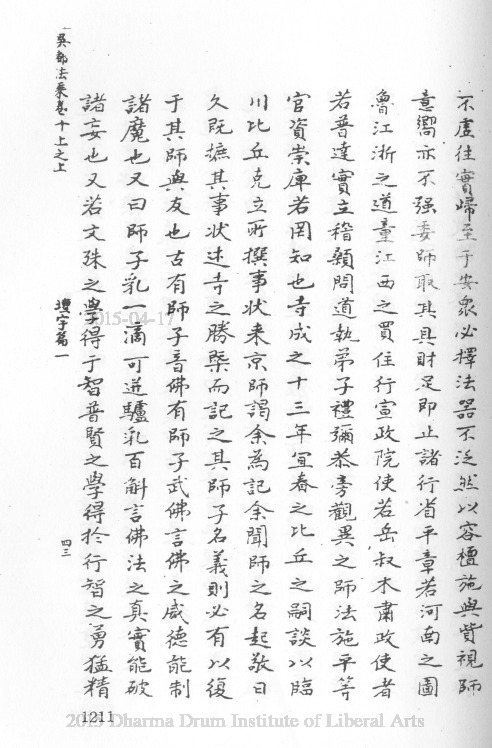 不虛往實歸至于安眾必擇法器不泛然以容檀施與貲視師
意嚮亦不强委師取其具財足即止諸行省平章若河南之圖
魯江浙之道童江西之買住行宣政院使若岳叔木肅政使者
若普達實立稽顙問道執弟子禮彌恭旁觀異之師法施平等
官資崇庳若罔知也寺成之十三年宜春之比丘之嗣談以臨
川比丘克立所撰事状来京師謁余為記余聞師之名起敬日
久既摭其事状述寺之勝槩而記之其師子名義則必有以復
于其師與友也古有師子音佛有師子武佛言佛之威德能制
諸魔也又曰師子乳一滴可迸驢乳百斛言佛法之真實能破
諸妄也又若文殊之學得于智普賢之學得於行智之勇猛精
吳都法乘卷十上之上
壇宇篇一
四三
2015-04-17
1211
2013 Dharma Drum Institute of Liberal Arts